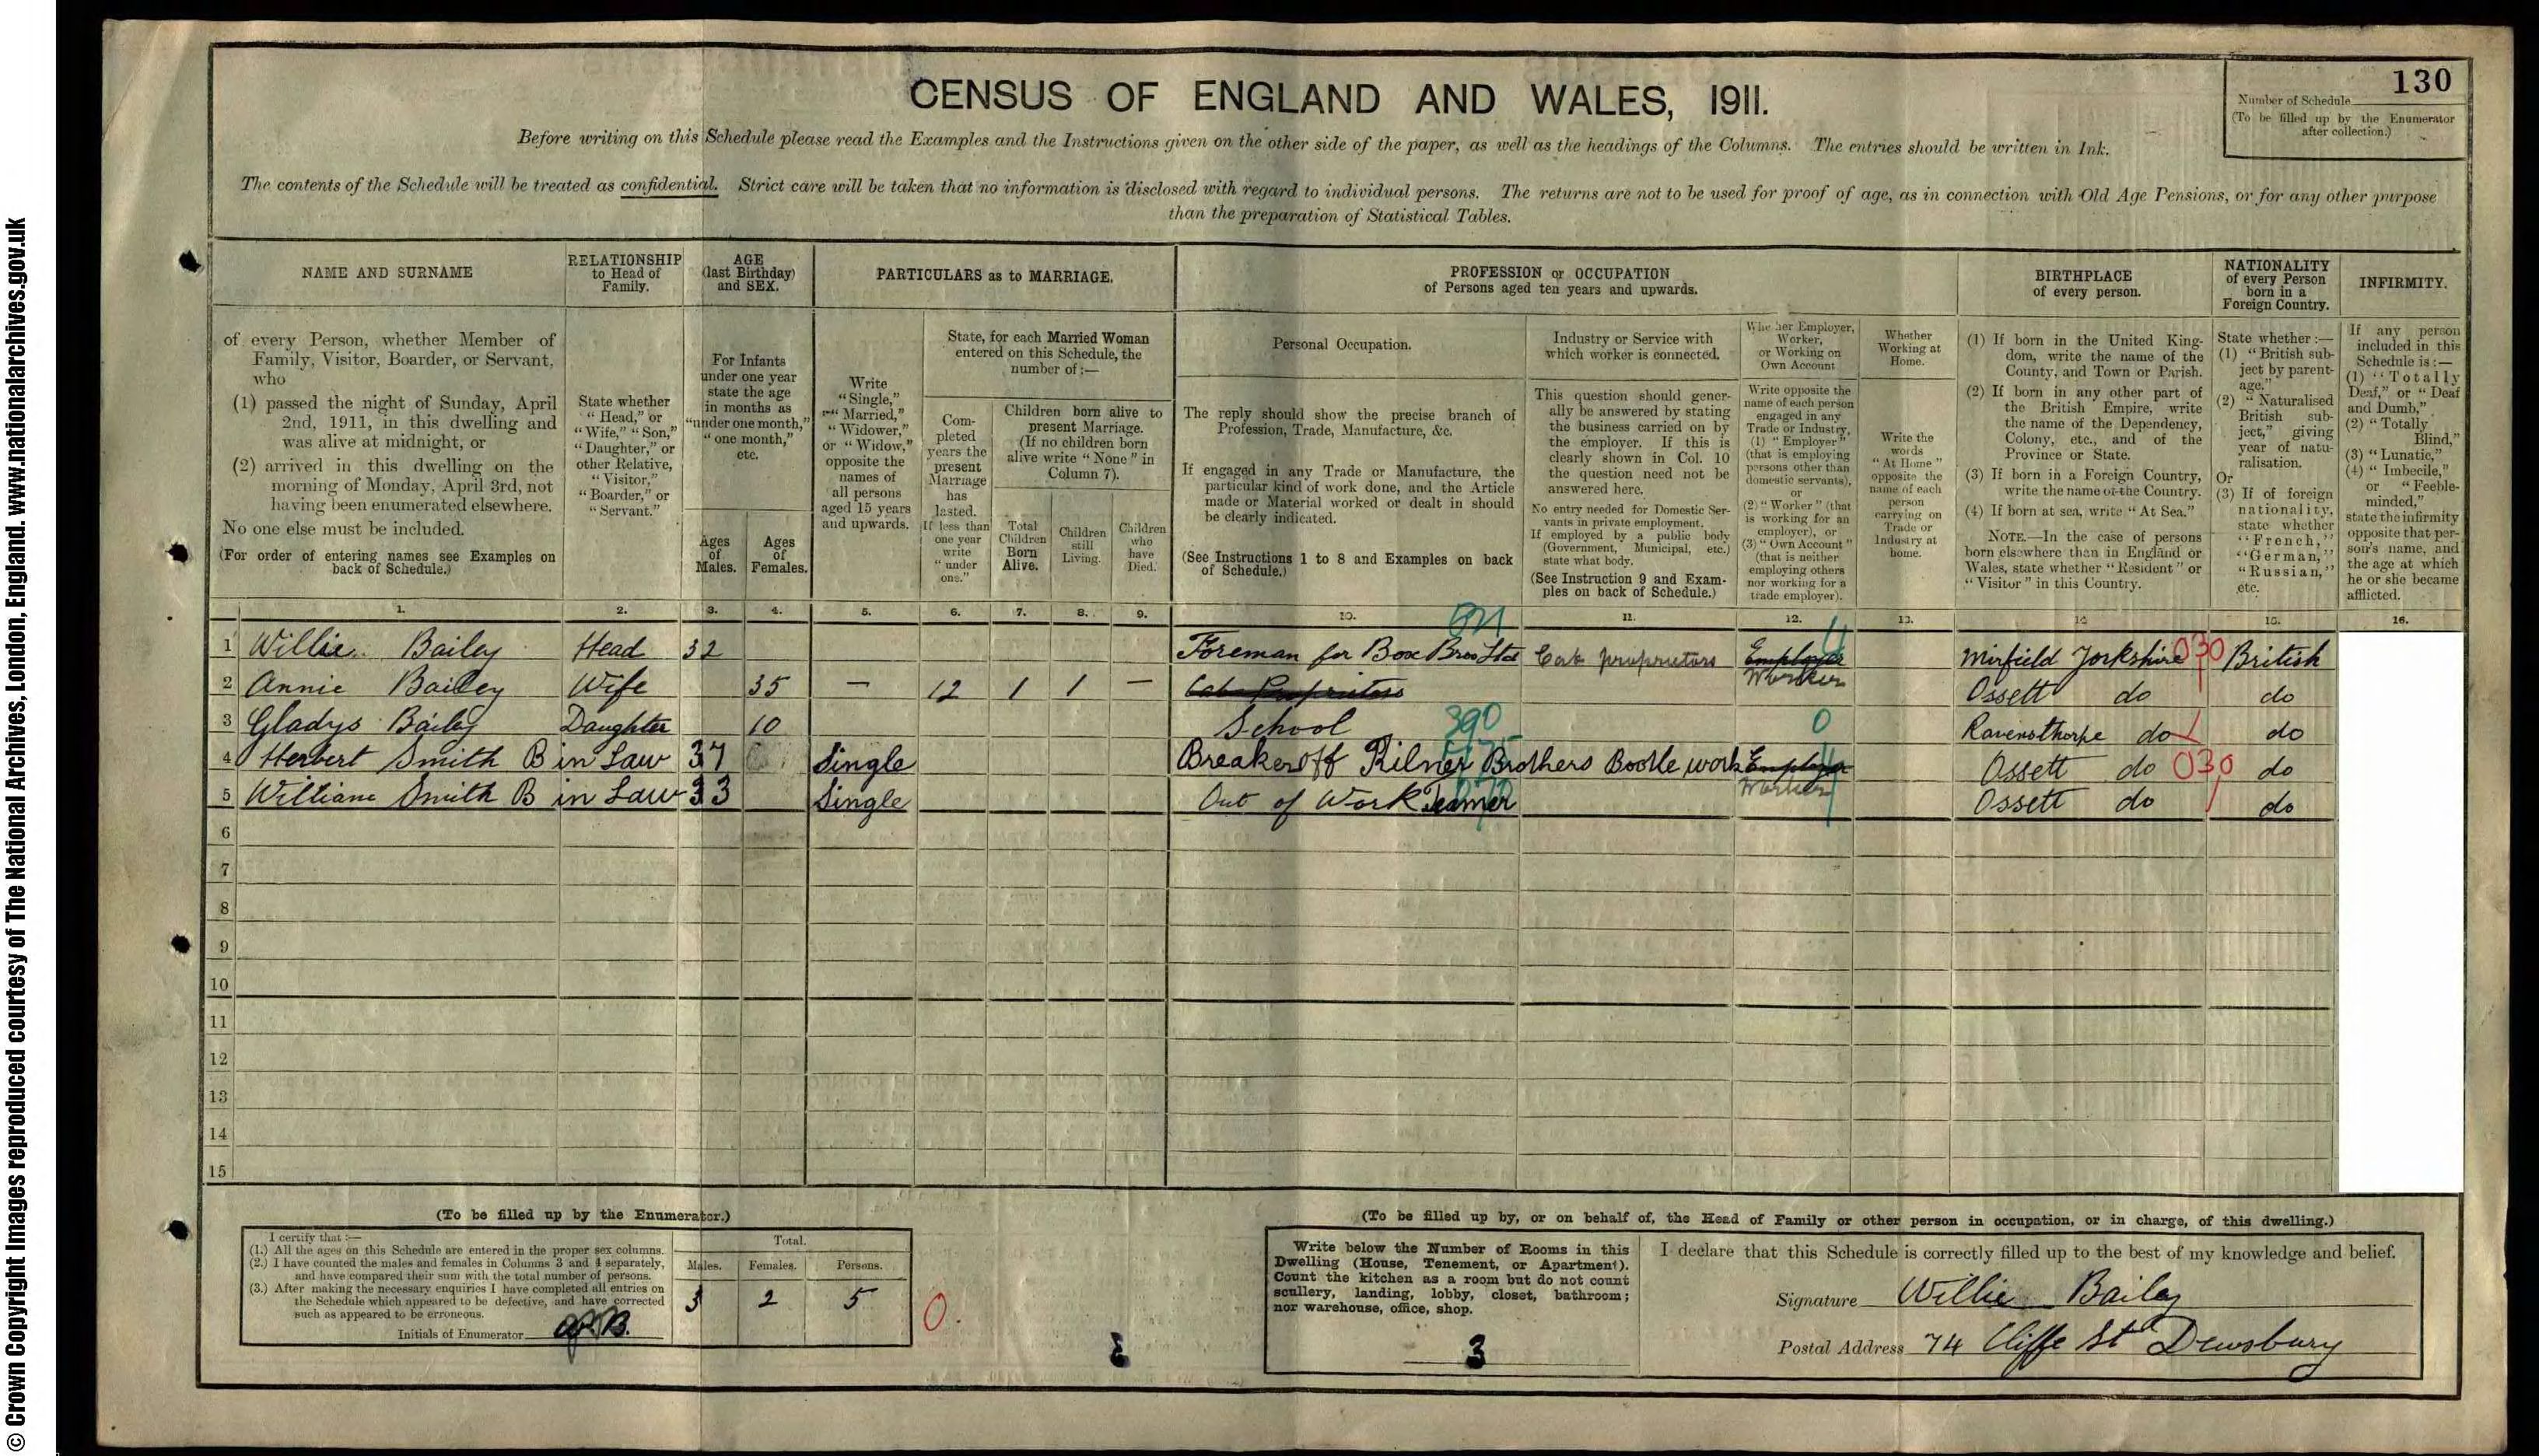 © Crown Copyright Images reproduced courtesy of The National Archives, London, England. www.nationalarchives.gov.uk
130
Number of Schedule
(To be filled up by the Enumerator
after collection.)
CENSUS OF ENGLAND AND WALES, 1911.
Before writing on this Schedule please read the Examples and the Instructions given on the other side of the paper, as well as the headings of the Columns. The entries should be written in Ink.
The contents of the Schedule will be treated as confidential. Strict care will be taken that no information is disclosed with regard to individual persons. The returns are not to be used for proof of age, as in connection with Old Age Pensions, or for any other purpose
than the preparation of Statistical Tables.
NAME AND SURNAME
of every Person, whether Member of
Family, Visitor, Boarder, or Servant,
who
(1) passed the night of Sunday, April
2nd, 1911, in this dwelling and
was alive at midnight, or
(2) arrived in this dwelling on the
morning of Monday, April 3rd, not
having been enumerated elsewhere.
No one else must be included.
(For order of entering names see Examples on
back of Schedule.)
RELATIONSHIP
to Head of
Family.
State whether
"Head," or
"Wife," "Son,"
"Daughter," or
other Relative,
"Visitor,"
"Boarder," or
"Servant."
AGE
(last Birthday)
and SEX.
For Infants
under one year
state the age
in months as
"under one month,"
"one month,"
etc.
Ages
of
Males.
Ages
of
Females.
PARTICULARS as to MARRIAGE.
Write
"Single,"
"Married,"
"Widower,"
or "Widow,"
opposite the
names of
all persons
aged 15 years
and upwards.
State, for each Married Woman
entered on this Schedule, the
number of :—
Com-
pleted
years the
present
Marriage
has
lasted.
If less than
one year
write
"under
one."
Children born alive to
present Marriage.
(If no children born
alive write "None" in
Column 7).
Total
Children
Born
Alive.
Children
still
Living.
Children
who
have
Died.
PROFESSION or OCCUPATION
of Persons aged ten years and upwards.
Personal Occupation.
The reply should show the precise branch of
Profession, Trade, Manufacture, &c.
If engaged in any Trade or Manufacture, the
particular kind of work done, and the Article
made or Material worked or dealt in should
be clearly indicated.
(See Instructions 1 to 8 and Examples on back
of Schedule.)
Industry or Service with
which worker is connected.
This question should gener-
ally be answered by stating
the business carried on by
the employer. If this is
clearly shown in Col. 10
the question need not be
answered here.
No entry needed for Domestic Ser-
vants in private employment.
If employed by a public body
(Government, Municipal, etc.)
state what body.
(See Instruction 9 and Exam-
ples on back of Schedule.)
Whether Employer,
Worker,
or Working on
Own Account
Write opposite the
name of each person
engaged in any
Trade or Industry,
(1) "Employer"
(that is employing
persons other than
domestic servants),
or
(2) "Worker" (that
is working for an
employer), or
(3) "Own Account"
(that is neither
employing others
nor working for a
trade employer).
Whether
Working at
Home.
Write the
words
"At Home"
opposite the
name of each
person
carrying on
Trade or
Industry at
home.
BIRTHPLACE
of every person.
(1) If born in the United King-
dom, write the name of the
County, and Town or Parish.
(2) If born in any other part of
the British Empire, write
the name of the Dependency,
Colony, etc., and of the
Province or State.
(3) If born in a Foreign Country,
write the name of the Country.
(4) If born at sea, write "At Sea."
NOTE.—In the case of persons
born elsewhere than in England or
Wales, state whether "Resident" or
"Visitor" in this Country.
NATIONALITY
of every Person
born in a
Foreign Country.
State whether :—
(1) "British sub-
ject by parent-
age."
(2) "Naturalised
British sub-
ject," giving
year of natu-
ralisation.
Or
(3) If of foreign
nationality,
state whether
"French,"
"German,"
"Russian,"
etc.
INFIRMITY.
If any person
included in this
Schedule is :—
(1) "Totally
Deaf," or "Deaf
and Dumb,"
(2) "Totally
Blind,"
(3) "Lunatic,"
(4) "Imbecile,"
or "Feeble-
minded,"
state the infirmity
opposite that per-
son's name, and
the age at which
he or she became
afflicted.
1. 2. 3. 4. 5. 6. 7. 8. 9. 10. 11. 12. 13. 14 15. 16.
1 Willie Bailey Head 32 Foreman for Box Bros Ltd Cab proprietors Employer Worker Mirfield Yorkshire 030 British
2 Annie Bailey Wife 35 — 12 1 1 — Cab Proprietors Ossett do do
3 Gladys Bailey Daughter 10 School 390 0 Ravensthorpe do do
4 Herbert Smith B in Law 37 Single Breaker off Kilner Brothers Bottle work Employer Worker Ossett do 030 do
5 William Smith B in Law 33 Single Out of Work Teamer Ossett do do
6
7
8
9
10
11
12
13
14
15
(To be filled up by the Enumerator.)
I certify that :—
(1.) All the ages on this Schedule are entered in the proper sex columns.
(2.) I have counted the males and females in Columns 3 and 4 separately,
and have compared their sum with the total number of persons.
(3.) After making the necessary enquiries I have completed all entries on
the Schedule which appeared to be defective, and have corrected
such as appeared to be erroneous.
Initials of Enumerator
Total.
Males. Females. Persons.
3 2 5
0.
(To be filled up by, or on behalf of, the Head of Family or other person in occupation, or in charge, of this dwelling.)
Write below the Number of Rooms in this
Dwelling (House, Tenement, or Apartment).
Count the kitchen as a room but do not count
scullery, landing, lobby, closet, bathroom;
nor warehouse, office, shop.
3
I declare that this Schedule is correctly filled up to the best of my knowledge and belief.
Signature Willie Bailey
Postal Address 74 Cliffe St Dewsbury